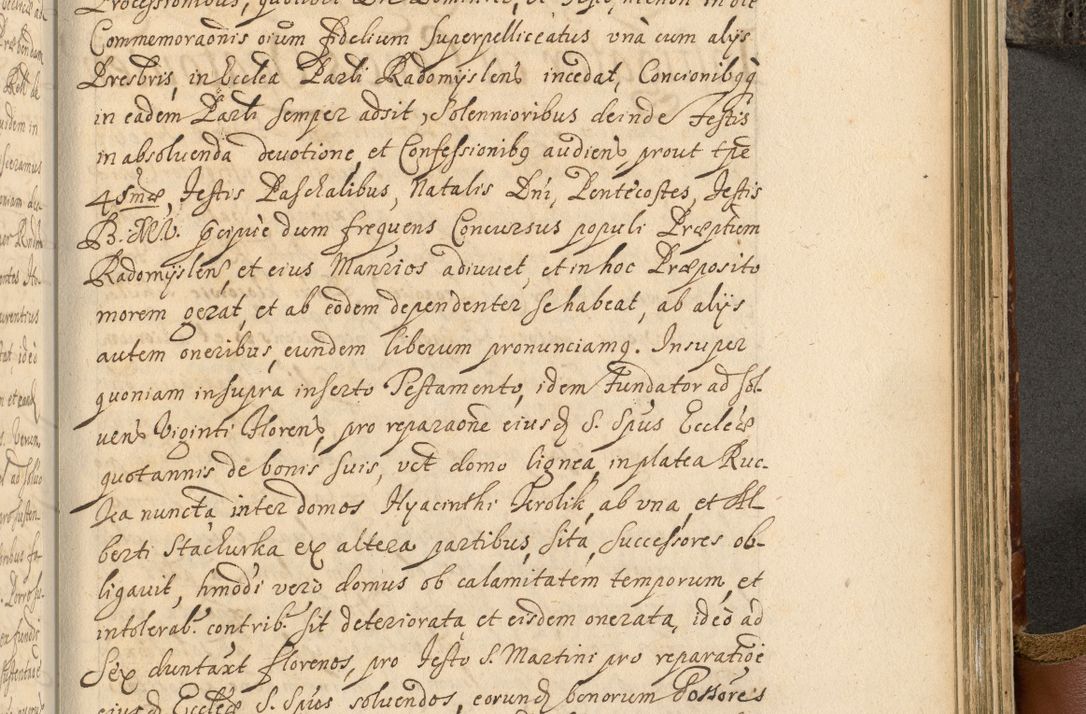 Processionibus, quolibet Die Dominico, et Festo, necnon in die
Commemoraonis oium Fidelium Superpelliceatus vna cum alijs
Presbris, in Ecclea Parli Radomyslens incedat, Concionibqq
in eadem Parli semper adsit, Solennioribus deinde Festis
in absoluenda deuotione, et Confessionibq audiens prout tpe
4gsmæ, Festis Paschalibus, Natalis Dni, Pentecostes, Festis
B. M. V. pcipue dum frequens Concursus populi Præptum
Radomyslens, et eius Manrios adiuuet, et in hoc Præposito
morem gerat, et ab eodem dependenter se habeat, ab alijs
autem oneribus, eundem liberum pronunciamq. Insuper
quoniam in supra inserto Testamento, idem Fundator ad sol-
uens Viginti Florens, pro reparaone eiusd S. Spus Eccleæ
quotannis de bonis suis, vct domo lignea, in platea Ruc-
nuncta inter domos Hyacinthi Jerolik, ab vna, et Al-
berti Stachurka ex altera partibus, sita, successores ob-
ligauit, hmodi vero domus ob calamitatem temporum, et
intolerab. contrib. sit deteriorata et eisdem onerata, ideo ad
Sex duntaxt florenos, pro Festo S. Martini pro reparatioe
eiusd Eccleæ S. Spus soluendos, eorund bonorum Possores